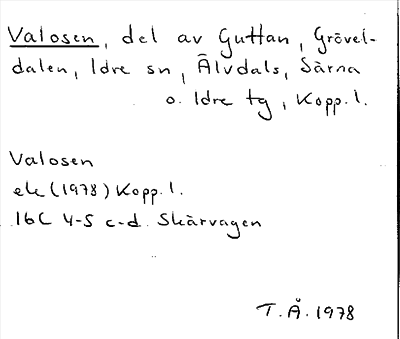 Valosen, del av Guttan, Grövel-
dalen, Idre sn, Älvdals, Särna
o. Idre tg, Kopp. l.
Valosen
ek (1978) Kopp. l.
16C 4-5 c-d Skärvagen
T. Å. 1978